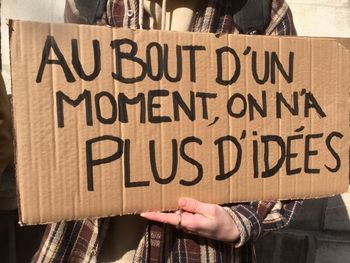 AU BOUT D'UN
MOMENT, ON N'A
PLUS D'IDÉES